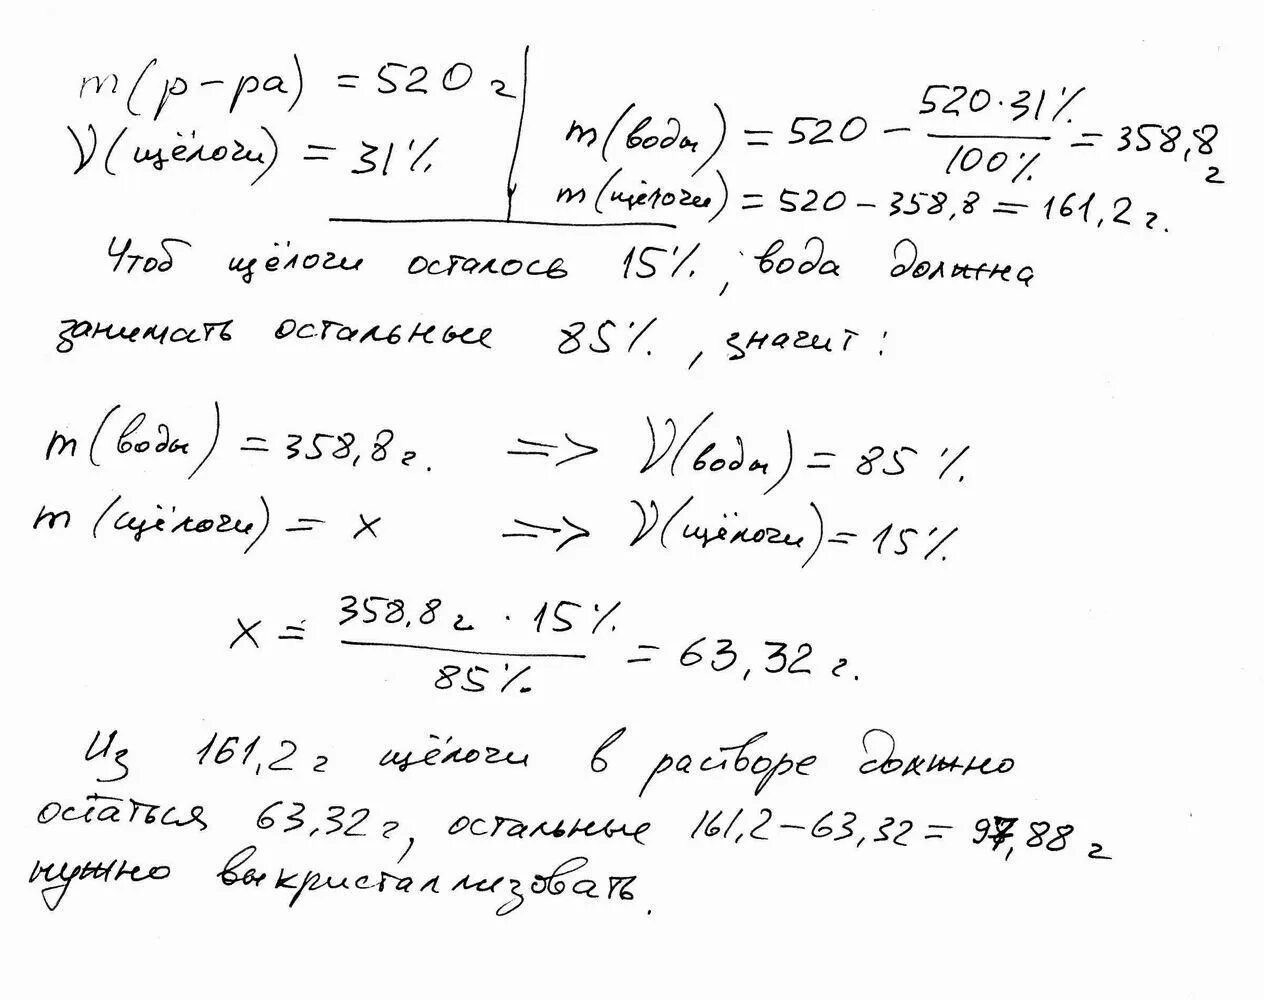 m(р-ра) = 520 г
V(щёлочи) = 31%
m(воды) = 520 - 520·31% / 100% = 358,8 г
m(щёлочи) = 520 - 358,8 = 161,2 г.
Чтоб щёлочи осталось 15%, вода должна
занимать остальные 85%, значит:
m(воды) = 358,8 г. => V(воды) = 85%.
m(щёлочи) = x => V(щёлочи) = 15%.
x = 358,8 г · 15% / 85% = 63,32 г.
Из 161,2 г щёлочи в растворе должно
остаться 63,32 г, остальные 161,2-63,32 = 97,88 г
нужно выкристаллизовать.